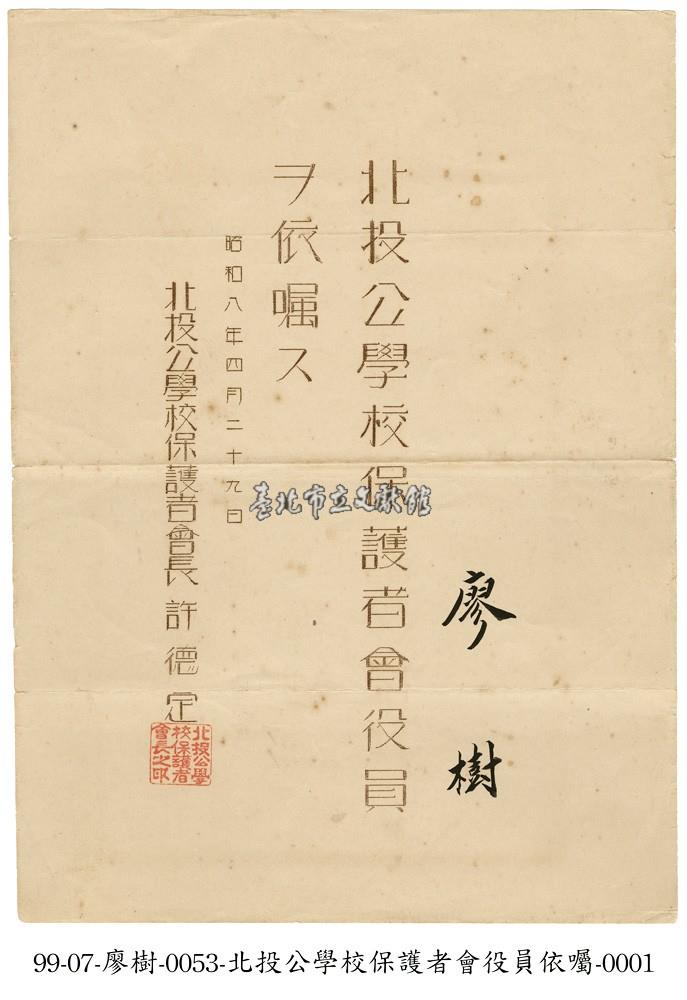 廖樹
北投公學校保護者會役員
ヲ依囑ス
昭和八年四月二十九日
北投公學校保護者會長 許德定
北投公學
校保護者
會長之印
臺北市立文獻館
99-07-廖樹-0053-北投公學校保護者會役員依囑-0001